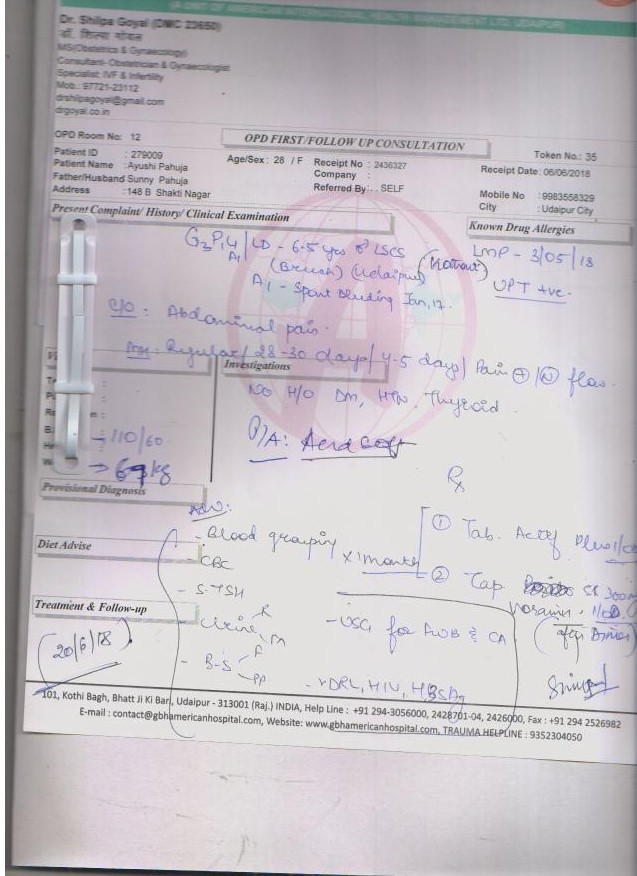 (A UNIT OF AMERICAN INTERNATIONAL HEALTH MANAGEMENT LTD. UDAIPUR)
Dr. Shilpa Goyal (DMC 23650)
डॉ. शिल्पा गोयल
MS(Obstetrics & Gynaecology)
Consultant- Obstetrician & Gynaecologist
Specialist IVF & Infertility
Mob.: 97721-23112
drshilpagoyal@gmail.com
drgoyal.co.in
OPD Room No: 12
OPD FIRST/FOLLOW UP CONSULTATION
Token No.: 35
Patient ID : 279009
Age/Sex: 28 / F
Receipt No : 2436327
Receipt Date: 06/06/2018
Patient Name : Ayushi Pahuja
Company :
Father/Husband Sunny Pahuja
Referred By: . SELF
Mobile No : 9983558329
Address : 148 B Shakti Nagar
City : Udaipur City
Present Complaint/ History/ Clinical Examination
Known Drug Allergies
LD - 6.5 yrs
LSCS
LMP - 3/05/18
(Udaipur)
A1 - Spont Bleeding Jan, 17.
UPT +ve.
C/O : Abdominal pain.
Regular / 28-30 days / 4-5 days / Pain ⊕ / Ⓝ flow.
Investigations
No H/O DM, HTN, Thyroid.
P/A:
110/60
67kg
Provisional Diagnosis
Rx
Adv:
- Blood grouping
x 1 month
① Tab.
- CBC
② Cap
Diet Advise
- S.TSH
Treatment & Follow-up
- Urine R M
- USG for
20/6/18
- B-S F PP
- VDRL, HIV, HBSAg
101, Kothi Bagh, Bhatt Ji Ki Bari, Udaipur - 313001 (Raj.) INDIA, Help Line : +91 294-3056000, 2428701-04, 2426000, Fax : +91 294 2526982
E-mail : contact@gbhamericanhospital.com, Website: www.gbhamericanhospital.com, TRAUMA HELPLINE : 9352304050